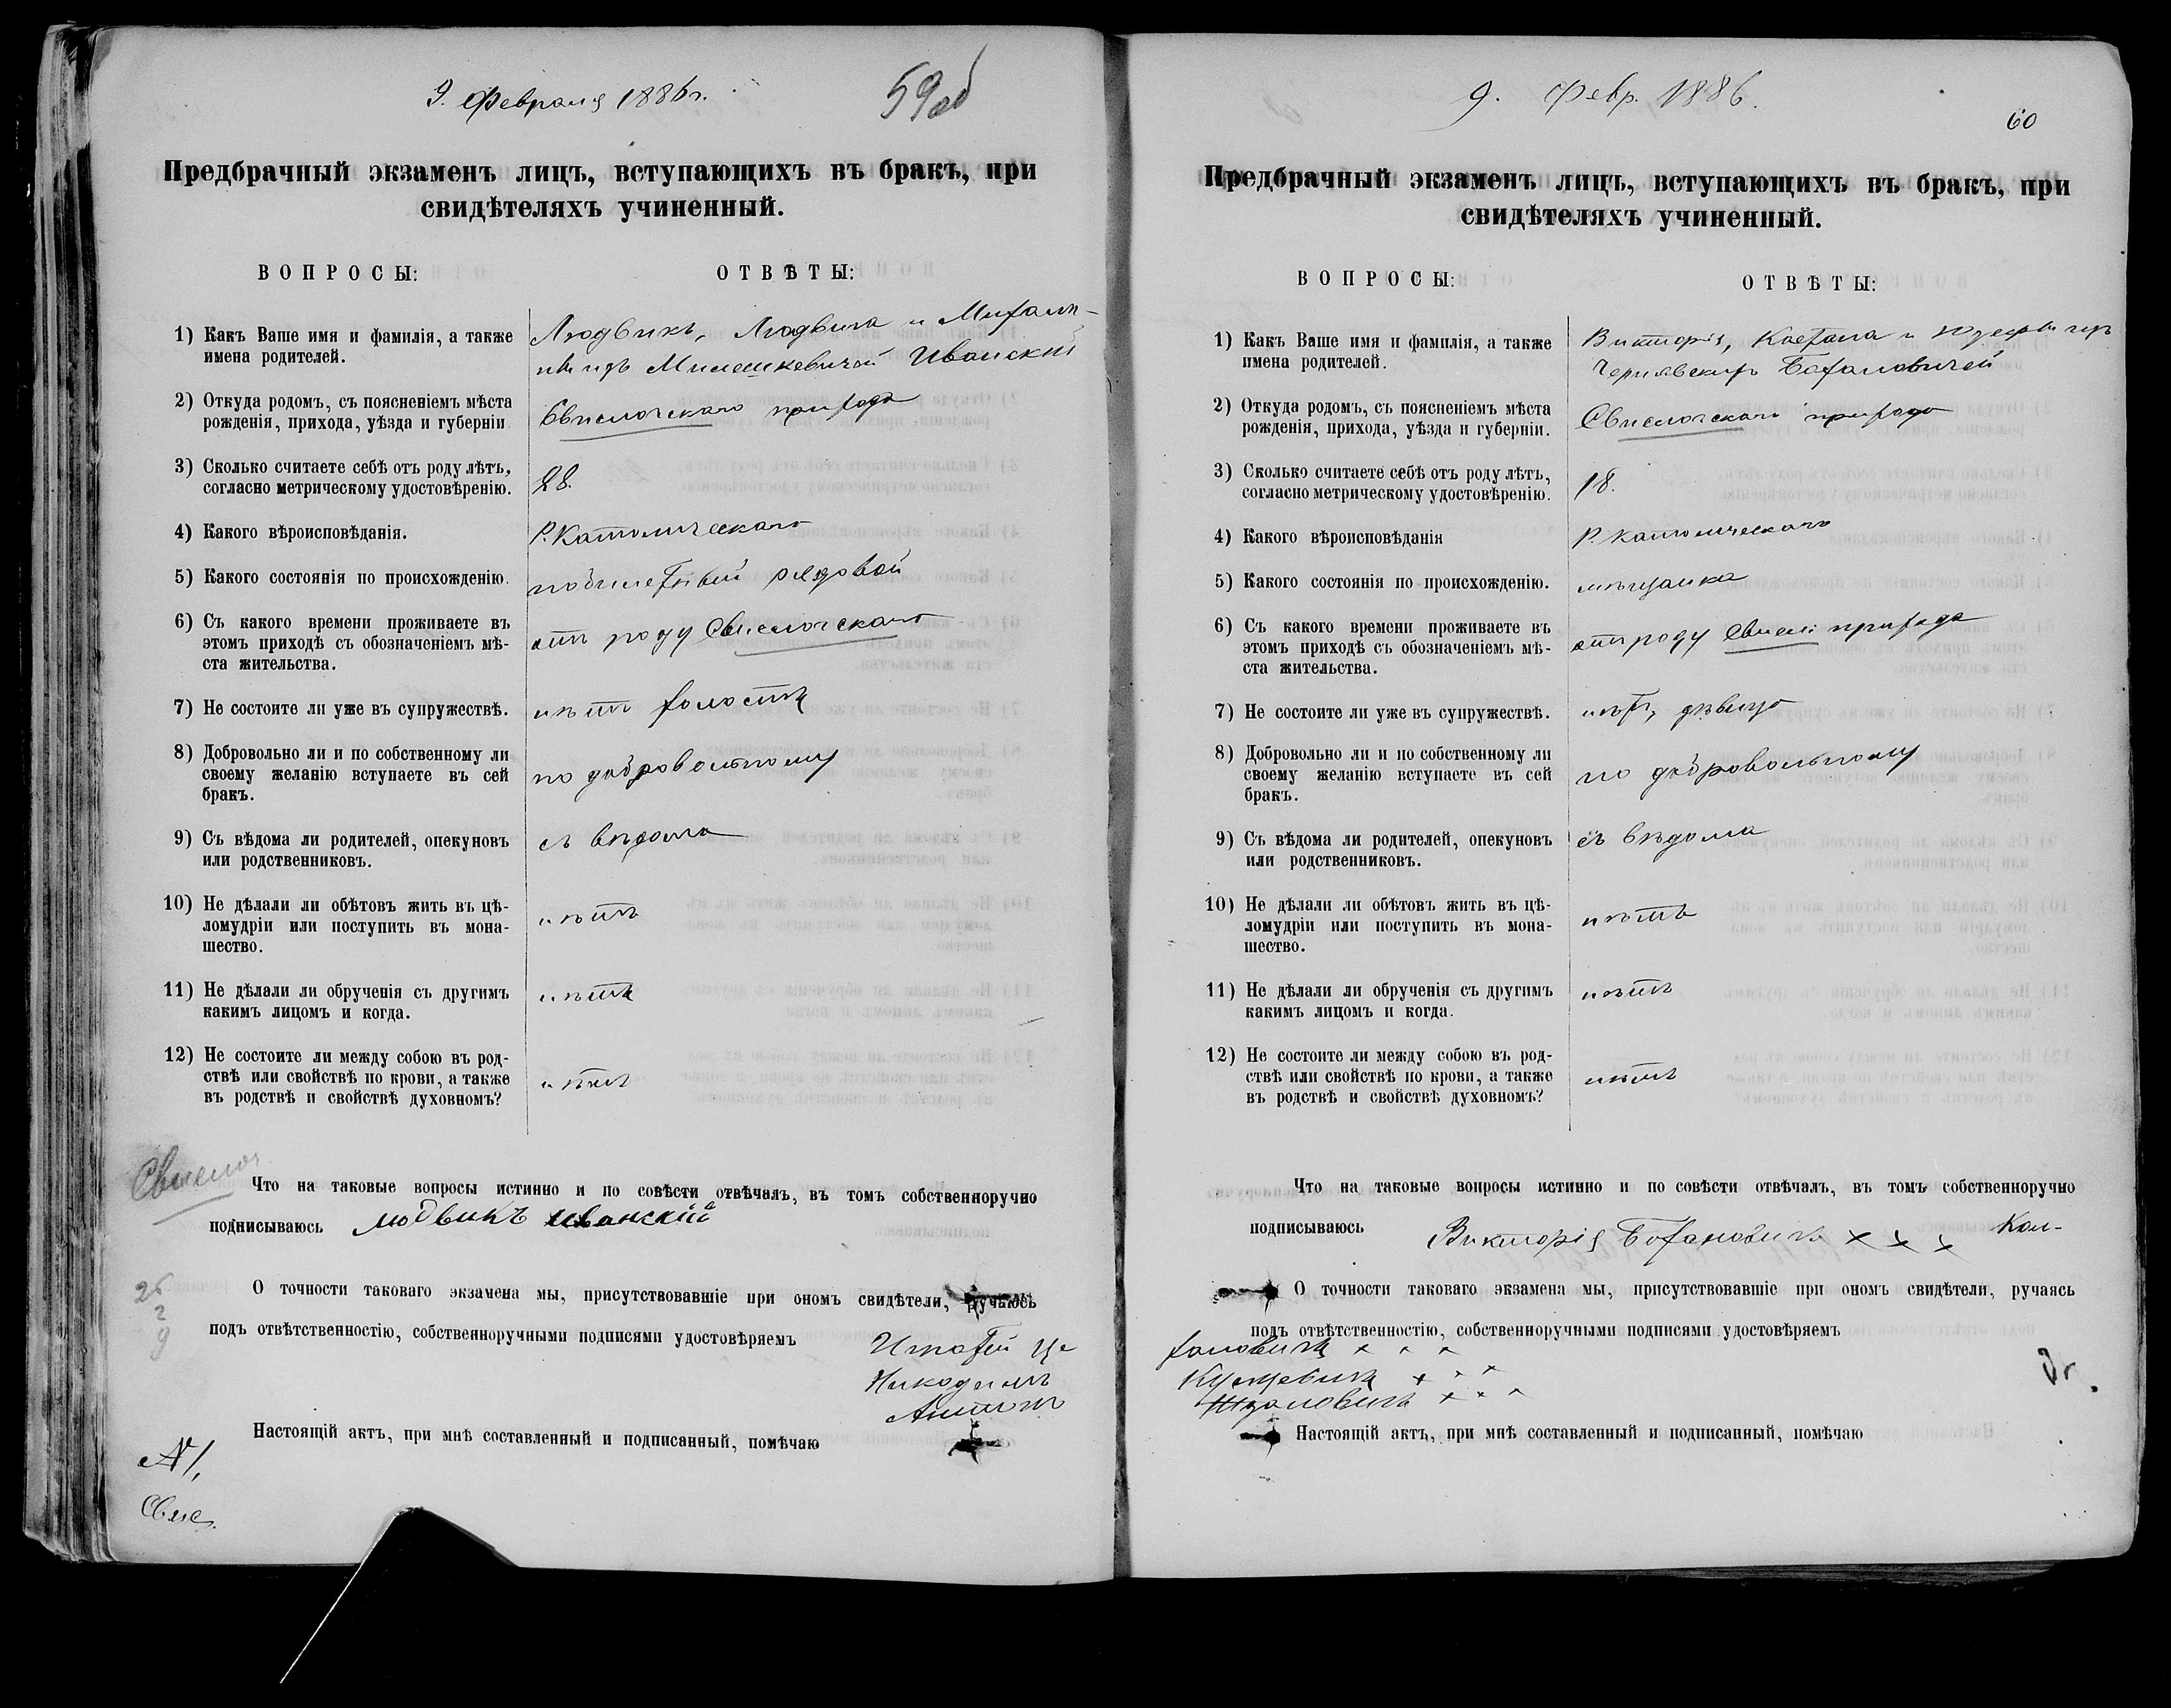 9. Февраля 1886 г.
59 об
Предбрачный экзаменъ лицъ, вступающихъ въ бракъ, при
свидѣтеляхъ учиненный.
ВОПРОСЫ:
ОТВѢТЫ:
1) Какъ Ваше имя и фамилія, а также
имена родителей.
Людвикъ, Людвика и
Милешкевичей Иванскій
2) Откуда родомъ, съ поясненіемъ мѣста
рожденія, прихода, уѣзда и губерніи
Свислочскаго прихода
3) Сколько считаете себѣ отъ роду лѣтъ,
согласно метрическому удостовѣренію.
28.
4) Какого вѣроисповѣданія.
Р. Католическаго
5) Какого состоянія по происхожденію.
рядовой
6) Съ какого времени проживаете въ
этомъ приходѣ съ обозначеніемъ мѣ-
ста жительства.
отъ роду Свислочскаго
7) Не состоите ли уже въ супружествѣ.
нѣтъ холостъ
8) Добровольно ли и по собственному ли
своему желанію вступаете въ сей
бракъ.
по добровольному
9) Съ вѣдома ли родителей, опекуновъ
или родственниковъ.
съ вѣдома
10) Не дѣлали ли обѣтовъ жить въ цѣ-
ломудріи или поступить въ мона-
шество.
нѣтъ
11) Не дѣлали ли обрученія съ другимъ
какимъ лицомъ и когда.
нѣтъ
12) Не состоите ли между собою въ род-
ствѣ или свойствѣ по крови, а также
въ родствѣ и свойствѣ духовномъ?
нѣтъ
Свислоч
Что на таковые вопросы истинно и по совѣсти отвѣчалъ, въ томъ собственноручно
подписываюсь Людвикъ Иванскій
О точности таковаго экзамена мы, присутствовавшіе при ономъ свидѣтели, ручаюсь
подъ отвѣтственностію, собственноручными подписями удостовѣряемъ
Никодимъ
Антонъ
Настоящій актъ, при мнѣ составленный и подписанный, помѣчаю
№ 1,
Свис.
9. Февр. 1886.
60
Предбрачный экзаменъ лицъ, вступающихъ въ бракъ, при
свидѣтеляхъ учиненный.
ВОПРОСЫ:
ОТВѢТЫ:
1) Какъ Ваше имя и фамилія, а также
имена родителей.
Викторія, Каетана и
Чернявскихъ Боханович‌ей
2) Откуда родомъ, съ поясненіемъ мѣста
рожденія, прихода, уѣзда и губерніи.
Свислочскаго прихода
3) Сколько считаете себѣ отъ роду лѣтъ,
согласно метрическому удостовѣренію.
18.
4) Какого вѣроисповѣданія
Р. Католическаго
5) Какого состоянія по происхожденію.
мѣщанка
6) Съ какого времени проживаете въ
этомъ приходѣ съ обозначеніемъ мѣ-
ста жительства.
отъ роду Свисл: прихода
7) Не состоите ли уже въ супружествѣ.
нѣтъ, дѣвица
8) Добровольно ли и по собственному ли
своему желанію вступаете въ сей
бракъ.
по добровольному
9) Съ вѣдома ли родителей, опекуновъ
или родственниковъ.
съ вѣдома
10) Не дѣлали ли обѣтовъ жить въ цѣ-
ломудріи или поступить въ мона-
шество.
нѣтъ
11) Не дѣлали ли обрученія съ другимъ
какимъ лицомъ и когда.
нѣтъ
12) Не состоите ли между собою въ род-
ствѣ или свойствѣ по крови, а также
въ родствѣ и свойствѣ духовномъ?
нѣтъ
Что на таковые вопросы истинно и по совѣсти отвѣчалъ, въ томъ собственноручно
подписываюсь Викторія Бохановичъ х х х
О точности таковаго экзамена мы, присутствовавшіе при ономъ свидѣтели, ручаясь
подъ отвѣтственностію, собственноручными подписями удостовѣряемъ
х х х
х х х
х х х
Настоящій актъ, при мнѣ составленный и подписанный, помѣчаю